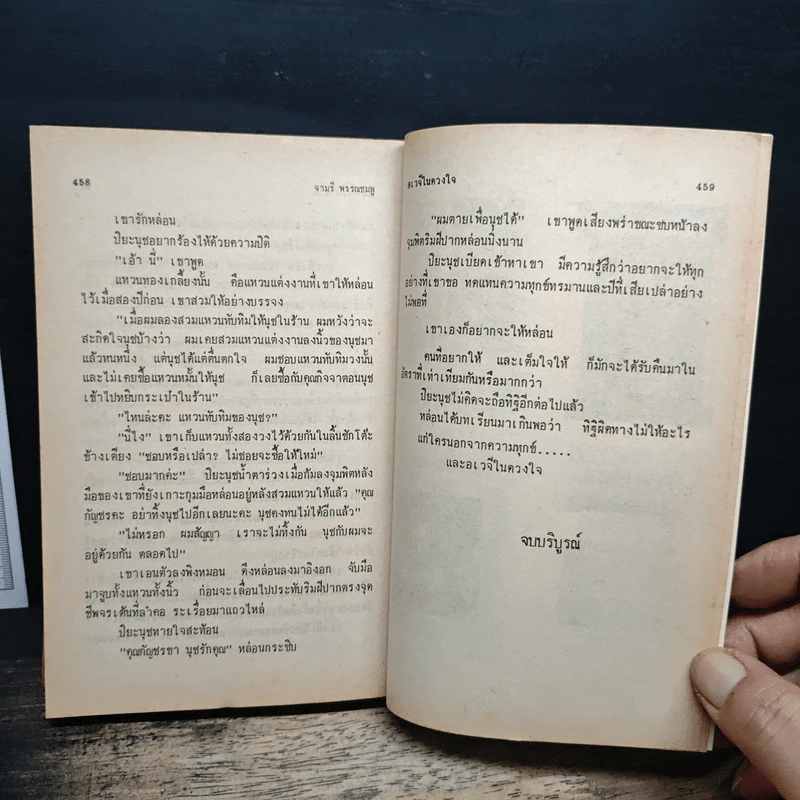 458
จามรี พรรณชมพู
เขารักหล่อน
ปิยะนุชอยากร้องไห้ด้วยความปิติ
"เอ้า นี่" เขาพูด
แหวนทองเกลี้ยงนั้น คือแหวนแต่งงานที่เขาให้หล่อน
ไว้เมื่อสองปีก่อน เขาสวมให้อย่างบรรจง
"เมื่อผมลองสวมแหวนทับทิมให้นุชในร้าน ผมหวังว่าจะ
สะกิดใจนุชบ้างว่า ผมเคยสวมแหวนแต่งงานลงนิ้วของนุชมา
แล้วหนหนึ่ง แต่นุชได้แต่ตื่นตกใจ ผมชอบแหวนทับทิมวงนั้น
และไม่เคยซื้อแหวนหมั้นให้นุช ก็เลยซื้อกับคุณกิจจาตอนนุช
เข้าไปหยิบกระเป๋าในร้าน"
"ไหนล่ะคะ แหวนทับทิมของนุช?"
"นี่ไง" เขาเก็บแหวนทั้งสองวงไว้ด้วยกันในลิ้นชักโต๊ะ
ข้างเตียง "ชอบหรือเปล่า? ไม่ชอยจะซื้อให้ใหม่"
"ชอบมากค่ะ" ปิยะนุชน้ำตาร่วงเมื่อก้มลงจุมพิตหลัง
มือของเขาที่ยังเกาะกุมมือหล่อนอยู่หลังสวมแหวนให้แล้ว "คุณ
กัญชรคะ อย่าทิ้งนุชไปอีกเลยนะคะ นุชคงทนไม่ได้อีกแล้ว"
"ไม่หรอก ผมสัญญา เราจะไม่ทิ้งกัน นุชกับผมจะ
อยู่ด้วยกัน ตลอดไป"
เขาเอนตัวลงพิงหมอน ดึงหล่อนลงมาอิงอก จับมือ
มาจูบทั้งแหวนทั้งนิ้ว ก่อนจะเลื่อนไปประทับริมฝีปากตรงจุด
ชีพจรเต้นที่ลำคอ ระเรื่อยมาแถวไหล่
ปิยะนุชหายใจสะท้อน
"คุณกัญชรขา นุชรักคุณ" หล่อนกระซิบ
อเวจีในดวงใจ
459
"ผมตายเพื่อนุชได้" เขาพูดเสียงพร่าขณะซบหน้าลง
จุมพิตริมฝีปากหล่อนนิ่งนาน
ปิยะนุชเบียดเข้าหาเขา มีความรู้สึกว่าอยากจะให้ทุก
อย่างที่เขาขอ ทดแทนความทุกข์ทรมานและปีที่เสียเปล่าอย่าง
ไม่พอที่
เขาเองก็อยากจะให้หล่อน
คนที่อยากให้ และเต็มใจให้ ก็มักจะได้รับคืนมาใน
อัตราที่เท่าเทียมกันหรือมากกว่า
ปิยะนุชไม่คิดจะถือทิฐิอีกต่อไปแล้ว
หล่อนได้บทเรียนมาเกินพอว่า ทิฐิผิดทางไม่ให้อะไร
แก่ใครนอกจากความทุกข์.....
และอเวจีในดวงใจ
จบบริบูรณ์